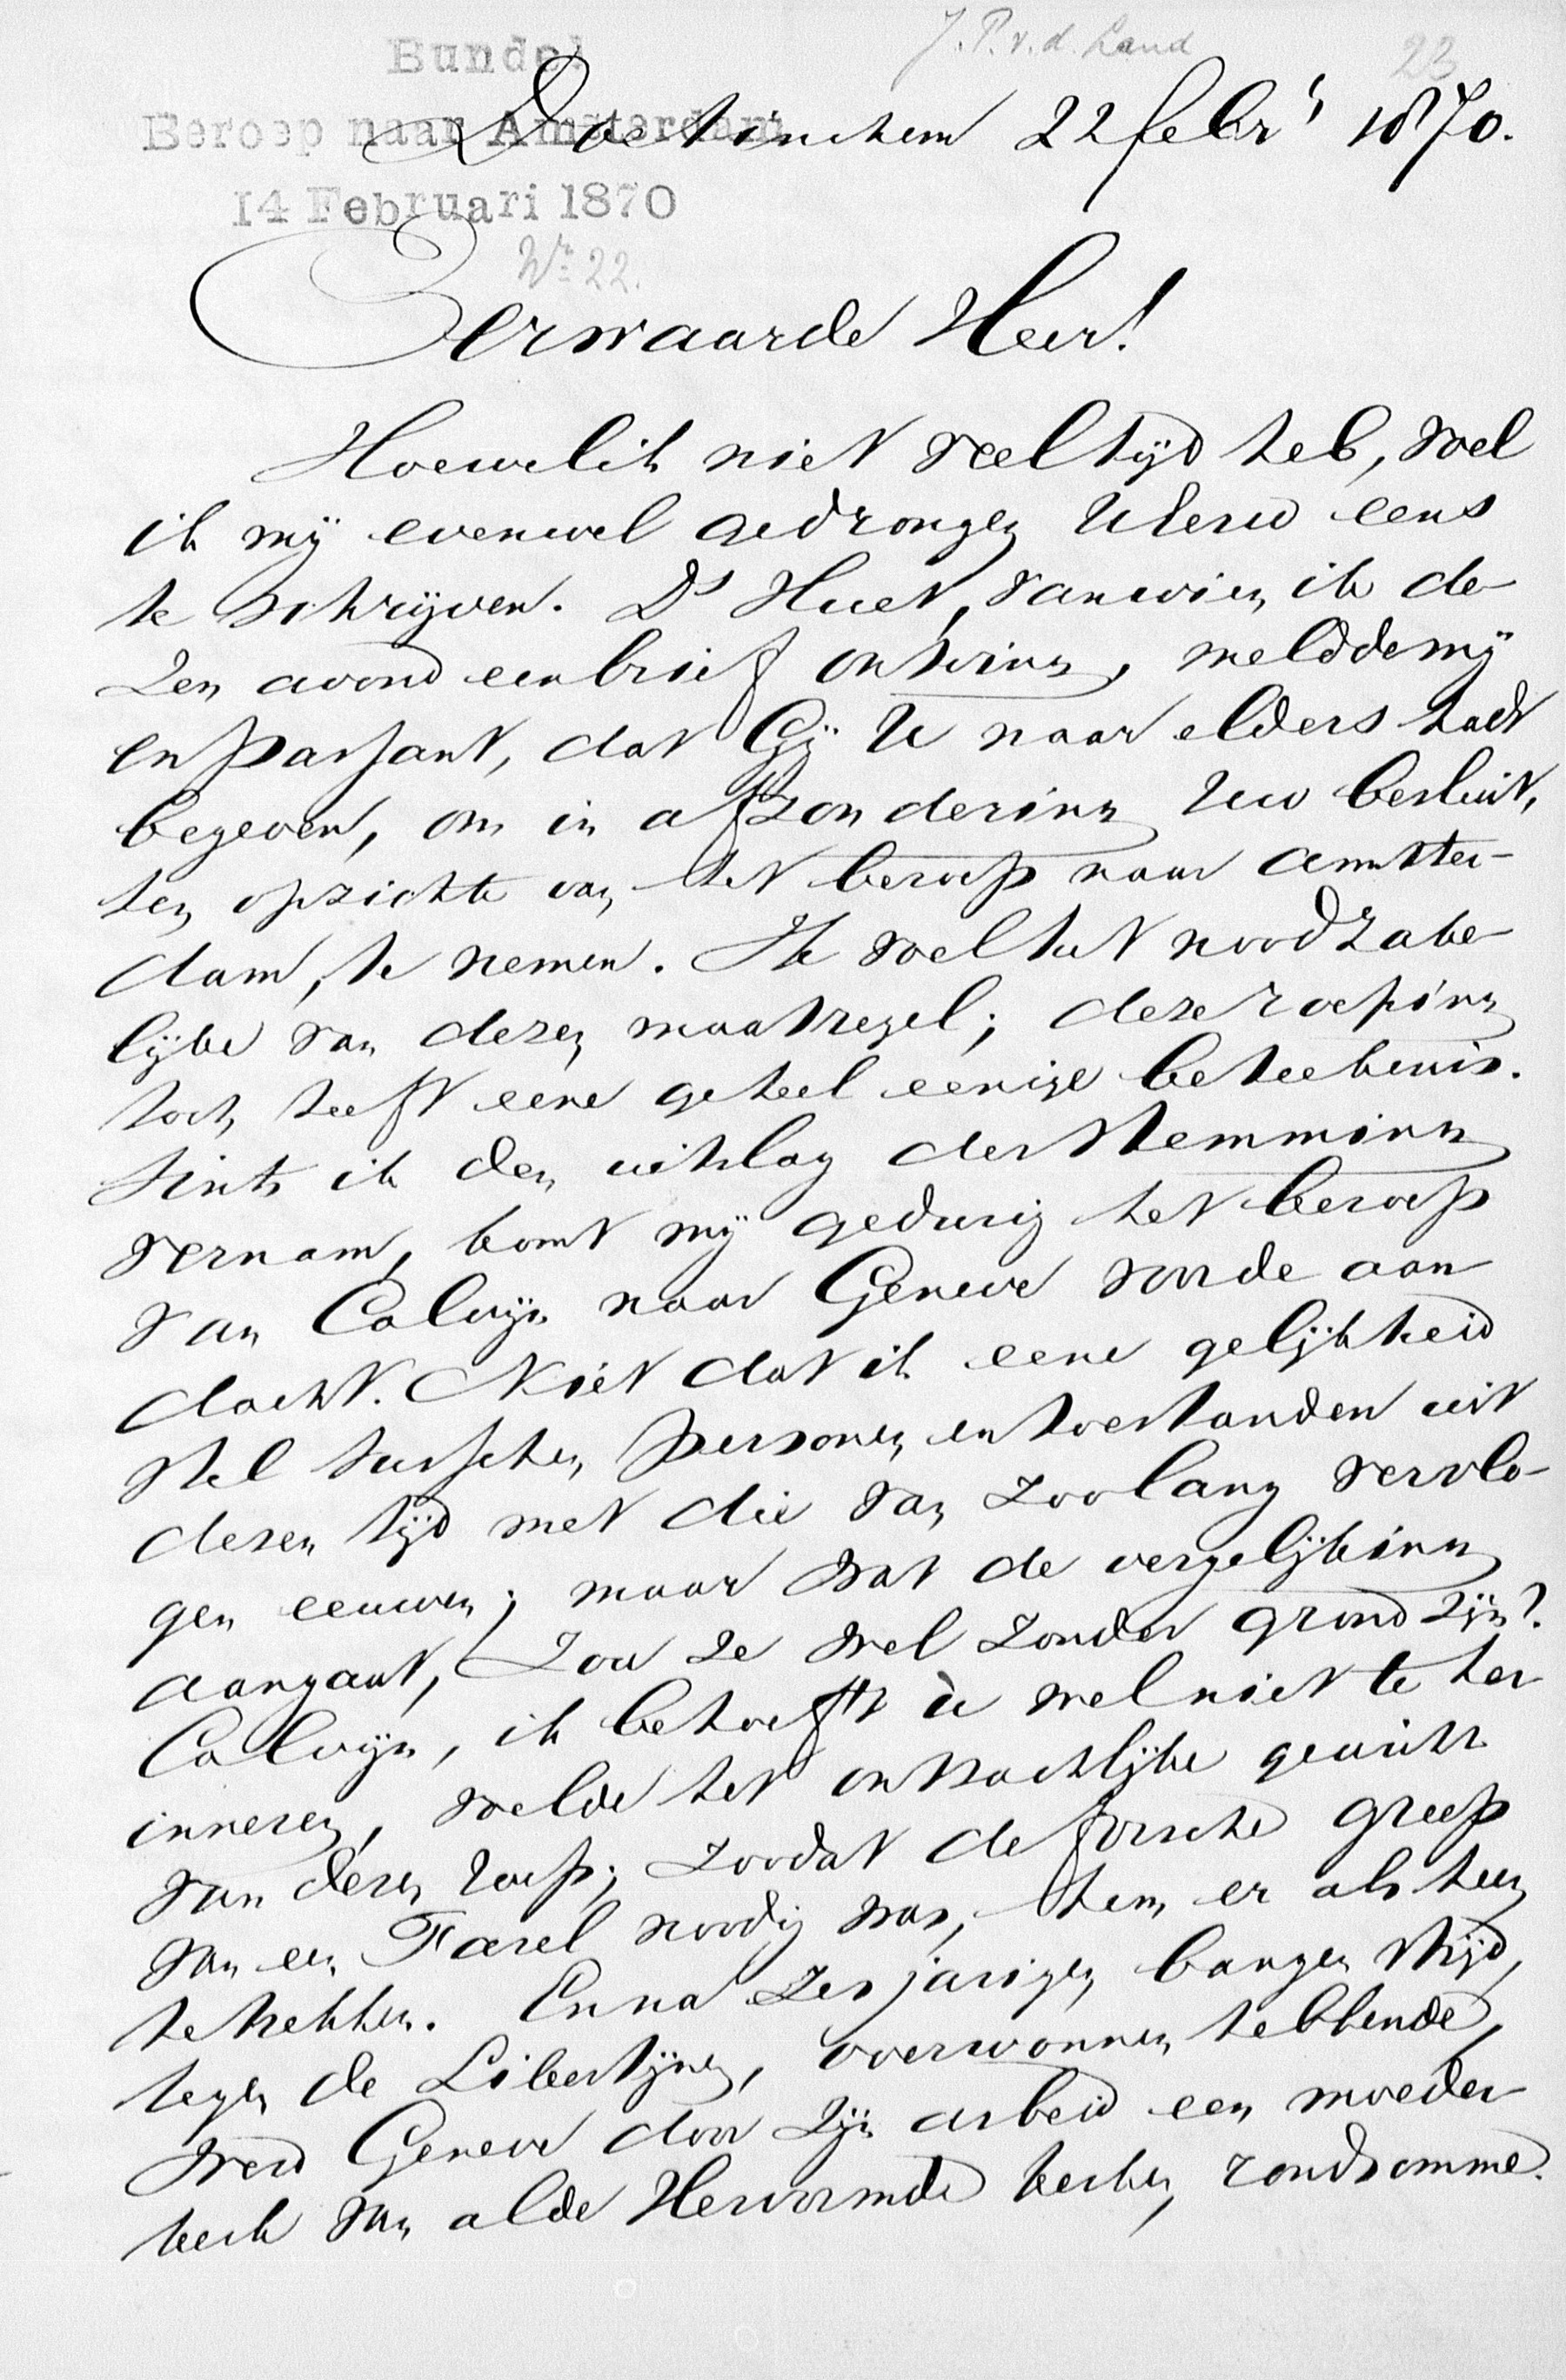 J. P. v. d. Land
23
Bundel
Beroep naar Amsterdam
14 Februari 1870
Nr. 22.
Doetinchem 22 febrs 1870.
Eerwaarde Heer!
Hoewel ik niet veel tijd heb, voel
ik mij evenwel gedrongen UEerw eens
te schrijven. Ds Huet, van wien ik de-
zen avond een brief ontving, meldde mij
en passant, dat Gij U naar elders hadt
begeven, om in afzondering Uw besluit,
ten opzichte van het beroep naar Amster-
dam, te nemen. Ik voel het noodzake-
lijke van dezen maatregel; deze roeping
toch heeft eene geheel eenige beteekenis.
Sints ik den uitslag der stemming
vernam, komt mij gedurig het beroep
van Calvijn naar Geneve voor de aan-
dacht. Niet dat ik eene gelijkheid
stel tusschen personen en toestanden uit
dezen tijd met die van zoolang vervlo-
gen eeuwen; maar wat de vergelijking
aangaat, zou ze wel zonder grond zijn?
Calvijn, ik behoef 't U wel niet te her-
inneren, voelde het ontzachlijke gewicht
van dezen roep; zoodat de forsche greep
van een Farel noodig was, hem er als heen
te trekken. En na zesjarigen bangen strijd,
tegen de Libertijnen, overwonnen hebbende,
werd Geneve door zijn arbeid een moeder-
kerk van al de Hervormde kerken rondsomme.